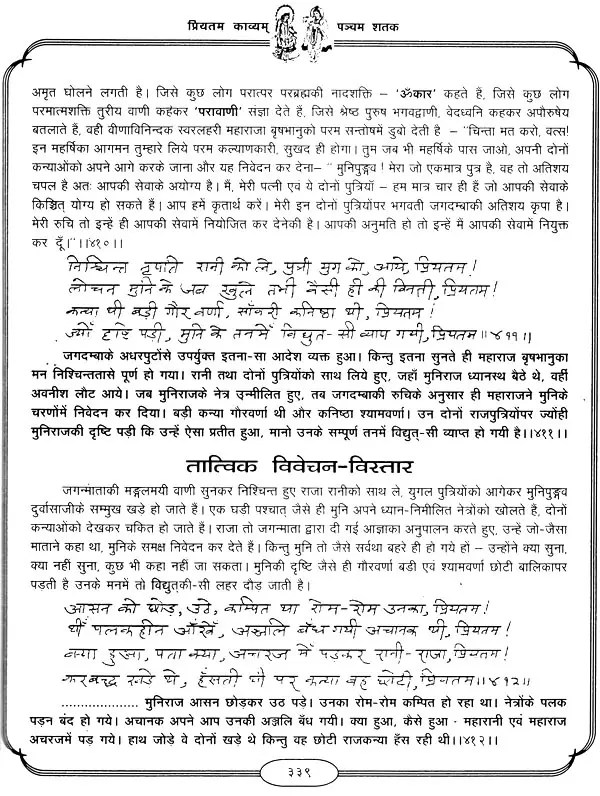 प्रियतम काव्यम् पञ्चम शतक
अमृत घोलने लगती है। जिसे कुछ लोग परात्पर परब्रह्मकी नादशक्ति – 'ॐकार' कहते हैं, जिसे कुछ लोग
परमात्मशक्ति तुरीय वाणी कहकर 'परावाणी' संज्ञा देते हैं, जिसे श्रेष्ठ पुरुष भगवद्वाणी, वेदध्वनि कहकर अपौरुषेय
बतलाते हैं, वही वीणाविनिन्दक स्वरलहरी महाराजा बृषभानुको परम सन्तोषमें डुबो देती है – "चिन्ता मत करो, वत्स!
इन महर्षिका आगमन तुम्हारे लिये परम कल्याणकारी, सुखद ही होगा। तुम जब भी महर्षिके पास जाओ, अपनी दोनों
कन्याओंको अपने आगे करके जाना और यह निवेदन कर देना– " मुनिपुङ्गव! मेरा जो एकमात्र पुत्र है, वह तो अतिशय
चपल है अतः आपकी सेवाके अयोग्य है। मैं, मेरी पत्नी एवं ये दोनों पुत्रियाँ – हम मात्र चार ही हैं जो आपकी सेवाके
किञ्चित् योग्य हो सकते हैं। आप हमें कृतार्थ करें। मेरी इन दोनों पुत्रियोंपर भगवती जगदम्बाकी अतिशय कृपा है।
मेरी रुचि तो इन्हें ही आपकी सेवामें नियोजित कर देनेकी है। आपकी अनुमति हो तो इन्हें मैं आपकी सेवामें नियुक्त
कर दूँ।"।।४१०।।
निश्चिन्त नृपति रानी को ले, पुत्री युग को, आये, प्रियतम!
लोचन मुनि के जब खुले तभी वैसी ही की विनती, प्रियतम!
कन्या थी बड़ी गौर वर्णा, साँवरी कनिष्ठा थी, प्रियतम!
ज्यों दृष्टि पड़ी, मुनि के तनमें विद्युत-सी व्याप गयी, प्रियतम॥४११॥
जगदम्बाके अधरपुटोंसे उपर्युक्त इतना-सा आदेश व्यक्त हुआ। किन्तु इतना सुनते ही महाराज बृषभानुका
मन निश्चिन्ततासे पूर्ण हो गया। रानी तथा दोनों पुत्रियोंको साथ लिये हुए, जहाँ मुनिराज ध्यानस्थ बैठे थे, वहीं
अवनीश लौट आये। जब मुनिराजके नेत्र उन्मीलित हुए, तब जगदम्बाकी रुचिके अनुसार ही महाराजने मुनिके
चरणोंमें निवेदन कर दिया। बड़ी कन्या गौरवर्णा थी और कनिष्ठा श्यामवर्णा। उन दोनों राजपुत्रियोंपर ज्योंही
मुनिराजकी दृष्टि पड़ी कि उन्हें ऐसा प्रतीत हुआ, मानो उनके सम्पूर्ण तनमें विद्युत्-सी व्याप्त हो गयी है।।४११।।
तात्विक विवेचन-विस्तार
जगन्माताकी मङ्गलमयी वाणी सुनकर निश्चिन्त हुए राजा रानीको साथ ले, युगल पुत्रियोंको आगेकर मुनिपुङ्गव
दुर्वासाजीके सम्मुख खड़े हो जाते हैं। एक घड़ी पश्चात् जैसे ही मुनि अपने ध्यान-निमीलित नेत्रोंको खोलते हैं, दोनों
कन्याओंको देखकर चकित हो जाते हैं। राजा तो जगन्माता द्वारा दी गई आज्ञाका अनुपालन करते हुए, उन्हें जो-जैसा
माताने कहा था, मुनिके समक्ष निवेदन कर देते हैं। किन्तु मुनि तो जैसे सर्वथा बहरे ही हो गये हो – उन्होंने क्या सुना,
क्या नहीं सुना, कुछ भी कहा नहीं जा सकता। मुनिकी दृष्टि जैसे ही गौरवर्णा बड़ी एवं श्यामवर्णा छोटी बालिकापर
पड़ती है उनके मनमें तो विद्युत्की-सी लहर दौड़ जाती है।
आसन को छोड़, उठे, कम्पित था रोम-रोम उनका, प्रियतम!
थीं पलकहीन आँखें, अञ्जलि बँध गयी अचानक थी, प्रियतम!
क्या हुआ, पता क्या, अचरज में पड़कर रानी-राजा, प्रियतम!
करबद्ध खड़े थे, हँसती थी पर कन्या वह छोटी, प्रियतम॥४१२॥
..................... मुनिराज आसन छोड़कर उठ पड़े। उनका रोम-रोम कम्पित हो रहा था। नेत्रोंके पलक
पड़न बंद हो गये। अचानक अपने आप उनकी अञ्जलि बँध गयी। क्या हुआ, कैसे हुआ - महारानी एवं महाराज
अचरजमें पड़ गये। हाथ जोड़े वे दोनों खड़े थे किन्तु वह छोटी राजकन्या हँस रही थी।।४१२।।
३३९